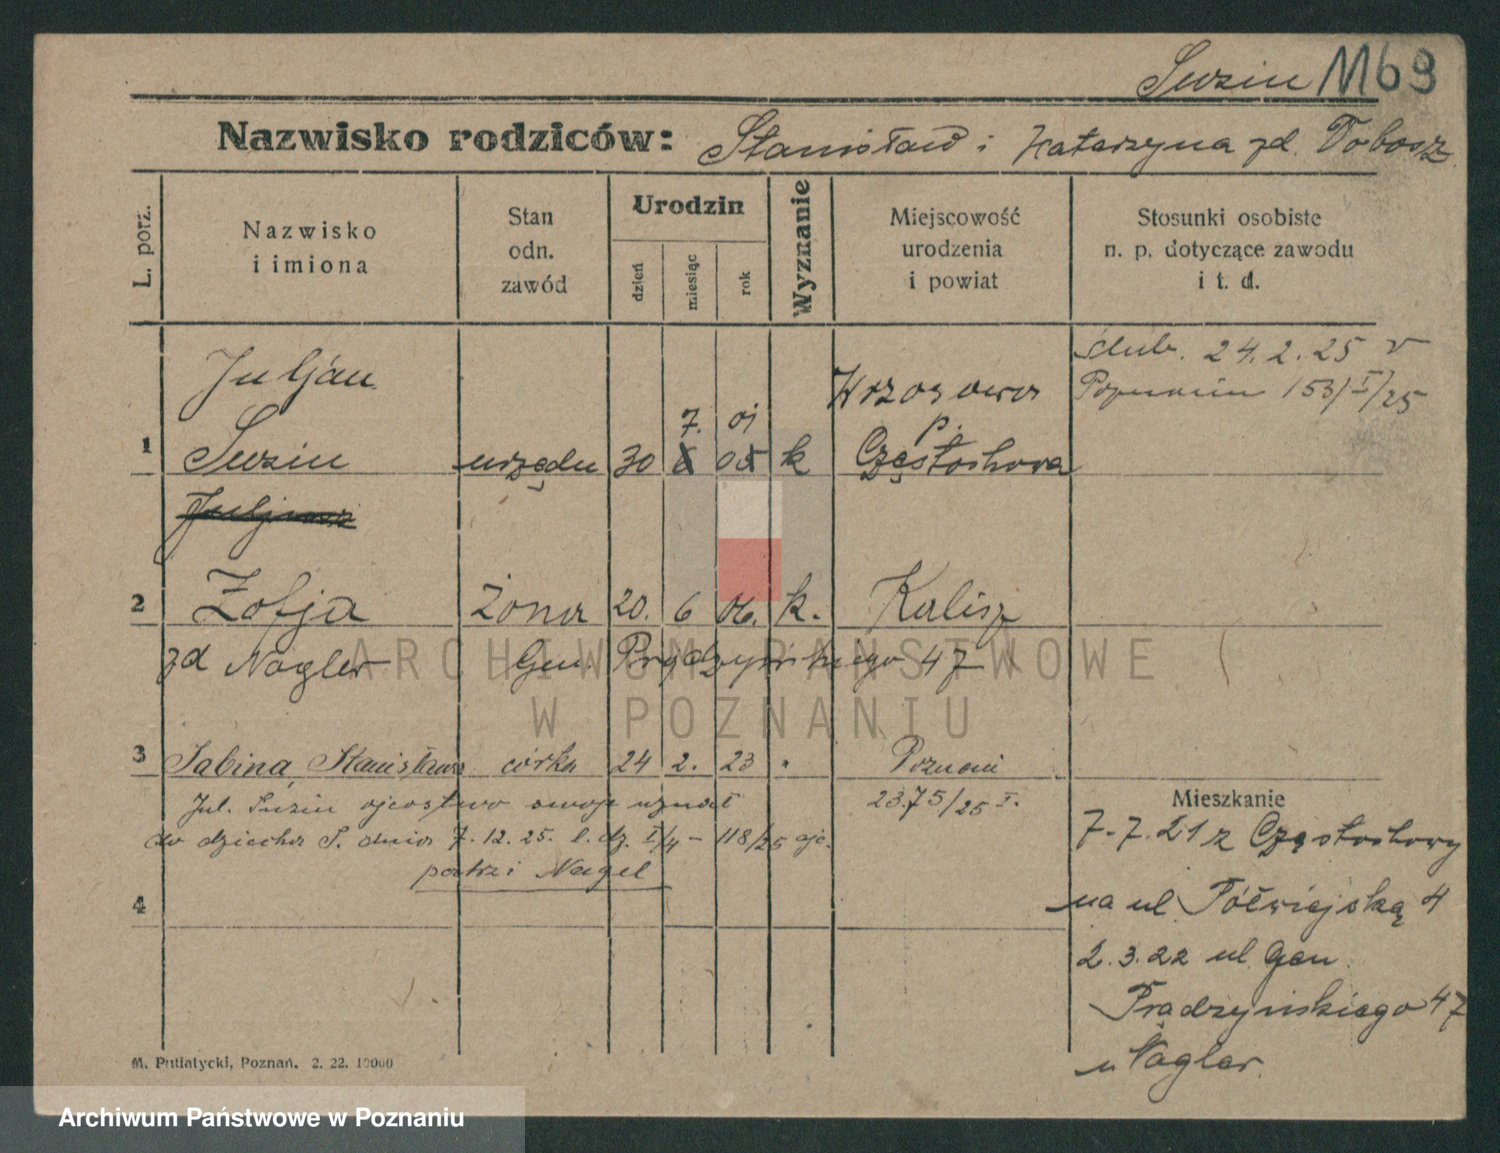 Suzin M69
Nazwisko rodziców: Stanisław i Katarzyna zd. Tobosz
L. porz.
Nazwisko
i imiona
Stan
odn.
zawód
Urodzin
dzień
miesiąc
rok
Wyznanie
Miejscowość
urodzenia
i powiat
Stosunki osobiste
n. p. dotyczące zawodu
i t. d.
ślub. 24.2.25 v
Poznaniu 153/I/25
Juljan
7. 01
Wrzosowa
p.
1 Suzin urzędn 30 6 05 k Częstochowa
2 Zofja żona 20. 6 06. k. Kalisz
zd Nagler Gen Prądzyńskiego 47
3 Sabina Stanisława córka 24 2. 23 " Poznań
Jul. Suzin ojcostwo swoje uznał 2375/25 I.
do dziecka S. dnia 7.12.25. l. dz. I/4 – 118/25 ojc.
patrz i Nagel
4
Mieszkanie
7.7.21 z Częstochowy
na ul. Półwiejską 4
2.3.22 ul Gen
Prądzyńskiego 47
u Nagler
M. Putiatycki, Poznań. 2. 22. 10000
ARCHIWUM PAŃSTWOWE
W POZNANIU
Archiwum Państwowe w Poznaniu